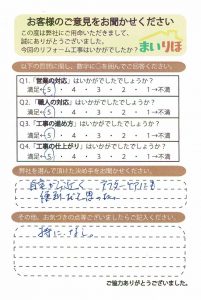 お客様のご意見をお聞かせください
この度は弊社にご用命いただきまして、
誠にありがとうございました。
今回のリフォーム工事はいかがでしたか？
まいりほ
以下の質問に関し、数字に○を囲んでご回答ください。
Q1.「営業の対応」はいかがでしたでしょうか？
満足←5・4・3・2・1→不満
Q2.「職人の対応」はいかがでしたでしょうか？
満足←5・4・3・2・1→不満
Q3.「工事の進め方」はいかがでしたでしょうか？
満足←5・4・3・2・1→不満
Q4.「工事の仕上がり」はいかがでしたでしょうか？
満足←5・4・3・2・1→不満
弊社を選んで頂けた決め手をお聞かせください。
自宅から近く アフターサービスにも
便利だと思った。
その他、お気づきの点等ございましたらご記入ください。
特になし。
ご協力ありがとうございました。